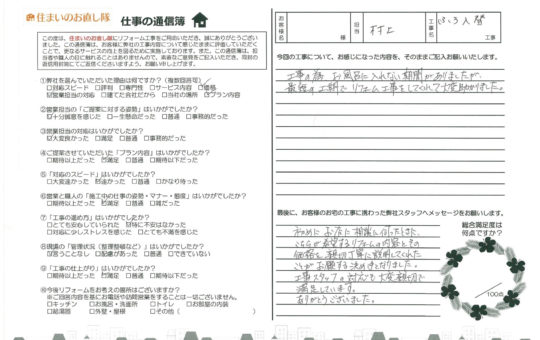 住まいのお直し隊
仕事の通信簿
この度は、住まいのお直し隊にリフォーム工事をご用命いただき、誠にありがとうございました。この通信簿は、お客様に弊社の工事内容について感じたままに評価していただくことで、更なるサービスの向上を図るために実施しております。また、この通信簿は、担当者や職人の目に触れることはありませんので、率直なご意見をご記入いただき、同封の返信用封筒にてご返送くださいますよう、お願い申し上げます。
①弊社を選んでいただいた理由は何ですか？(複数回答可)
□対応スピード □評判 □専門性 □サービス内容 ☑価格
☑営業担当の対応 □建てた会社だから □当社の場所 ☑プラン内容
②営業担当の「ご提案に対する姿勢」はいかがでしたか？
☑十分誠意を感じた □一生懸命だった □普通 □事務的だった
③営業担当の対応はいかがでしたか？
☑大変良かった □満足 □普通 □事務的だった
④ご提案させていただいた「プラン内容」はいかがでしたか？
□期待以上だった ☑満足 □普通 □期待以下だった
⑤「対応のスピード」はいかがでしたか？
□大変速かった ☑速かった □普通 □かなり待った
⑥営業と職人の「施工中の仕事の姿勢・マナー・態度」はいかがでしたか？
□期待以上だった ☑満足 □普通 □期待以下だった
⑦「工事の進め方」はいかがでしたか？
□とても安心していられた ☑特に不安はなかった
□対応に少しストレスを感じた □とても不満を感じた
⑧現場の「管理状況(整理整頓など)」はいかがでしたか？
☑言うことなし □配慮があった □普通 □できていない
⑨「工事の仕上がり」はいかがでしたか？
□期待以上だった ☑満足 □普通 □期待以下だった
⑩今後リフォームをお考えの箇所はございますか？
※ご回答内容を基にお電話や訪問営業をすることは一切ございません。
□キッチン □お風呂・洗面所 □トイレ □お部屋の内装
□給湯器 □外壁・屋根 □その他(
お客様名
担当
村上
工事名
今回の工事について、お感じになった内容を、そのままご記入お願いいたします。
工事の話 お風呂に入れない期間がありましたが、
最短の工期でリフォーム工事をしてくれて大変助かりました。
最後に、お客様のお宅の工事に携わった弊社スタッフへメッセージをお願いします。
初めにお店に相談に行ったとき、
こちらが希望するリフォームの内容とその
価格を親切丁寧に説明してくれた
ことがお願する決め手となりました。
工事スタッフの対応も大変親切で
満足しています。
ありがとうございました。
総合満足度は
何点ですか？
/100点